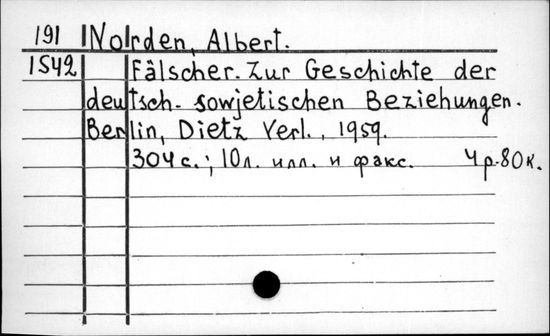 191 Norden, Albert.
1542 Fälscher. Zur Geschichte der
deutsch-sowjetischen Beziehungen.
Berlin, Dietz Verl., 1959.
304 с.; 10 л. илл. и факс. 4 р. 80 к.